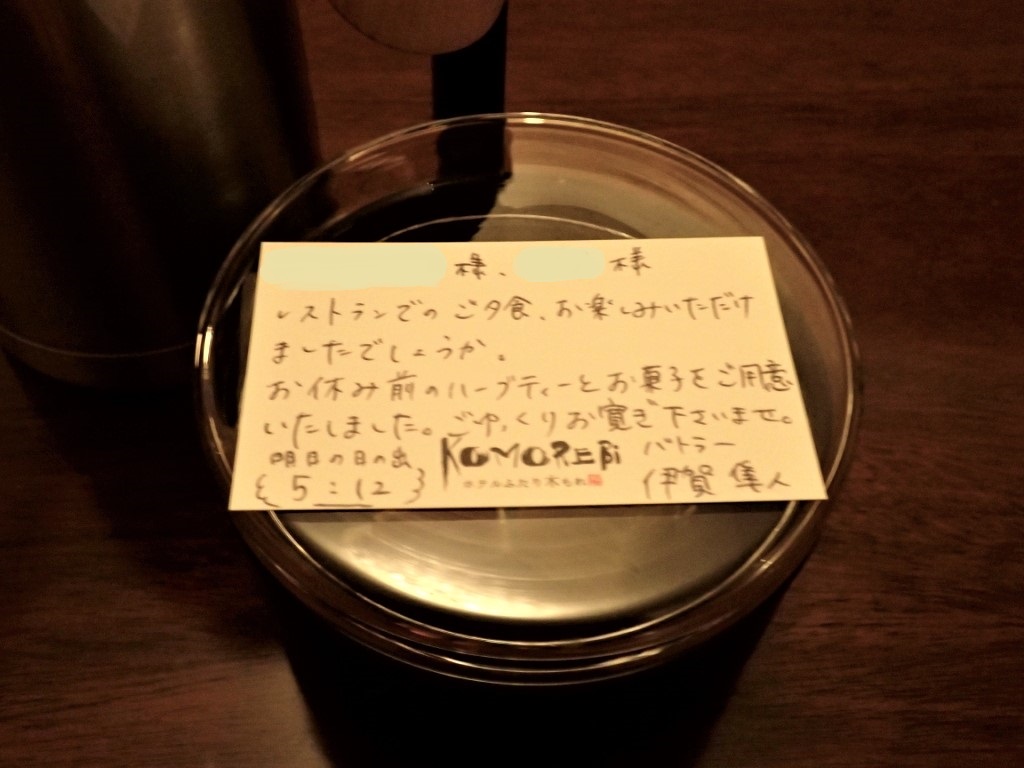 様、 様
レストランでのご夕食、お楽しみいただけ
ましたでしょうか。
お休み前のハーブティーとお菓子をご用意
いたしました。ごゆっくりお寛ぎ下さいませ。
明日の日の出
{5:12}
KOMOREBi
ホテルふたり木もれ
バトラー
伊賀 隼人